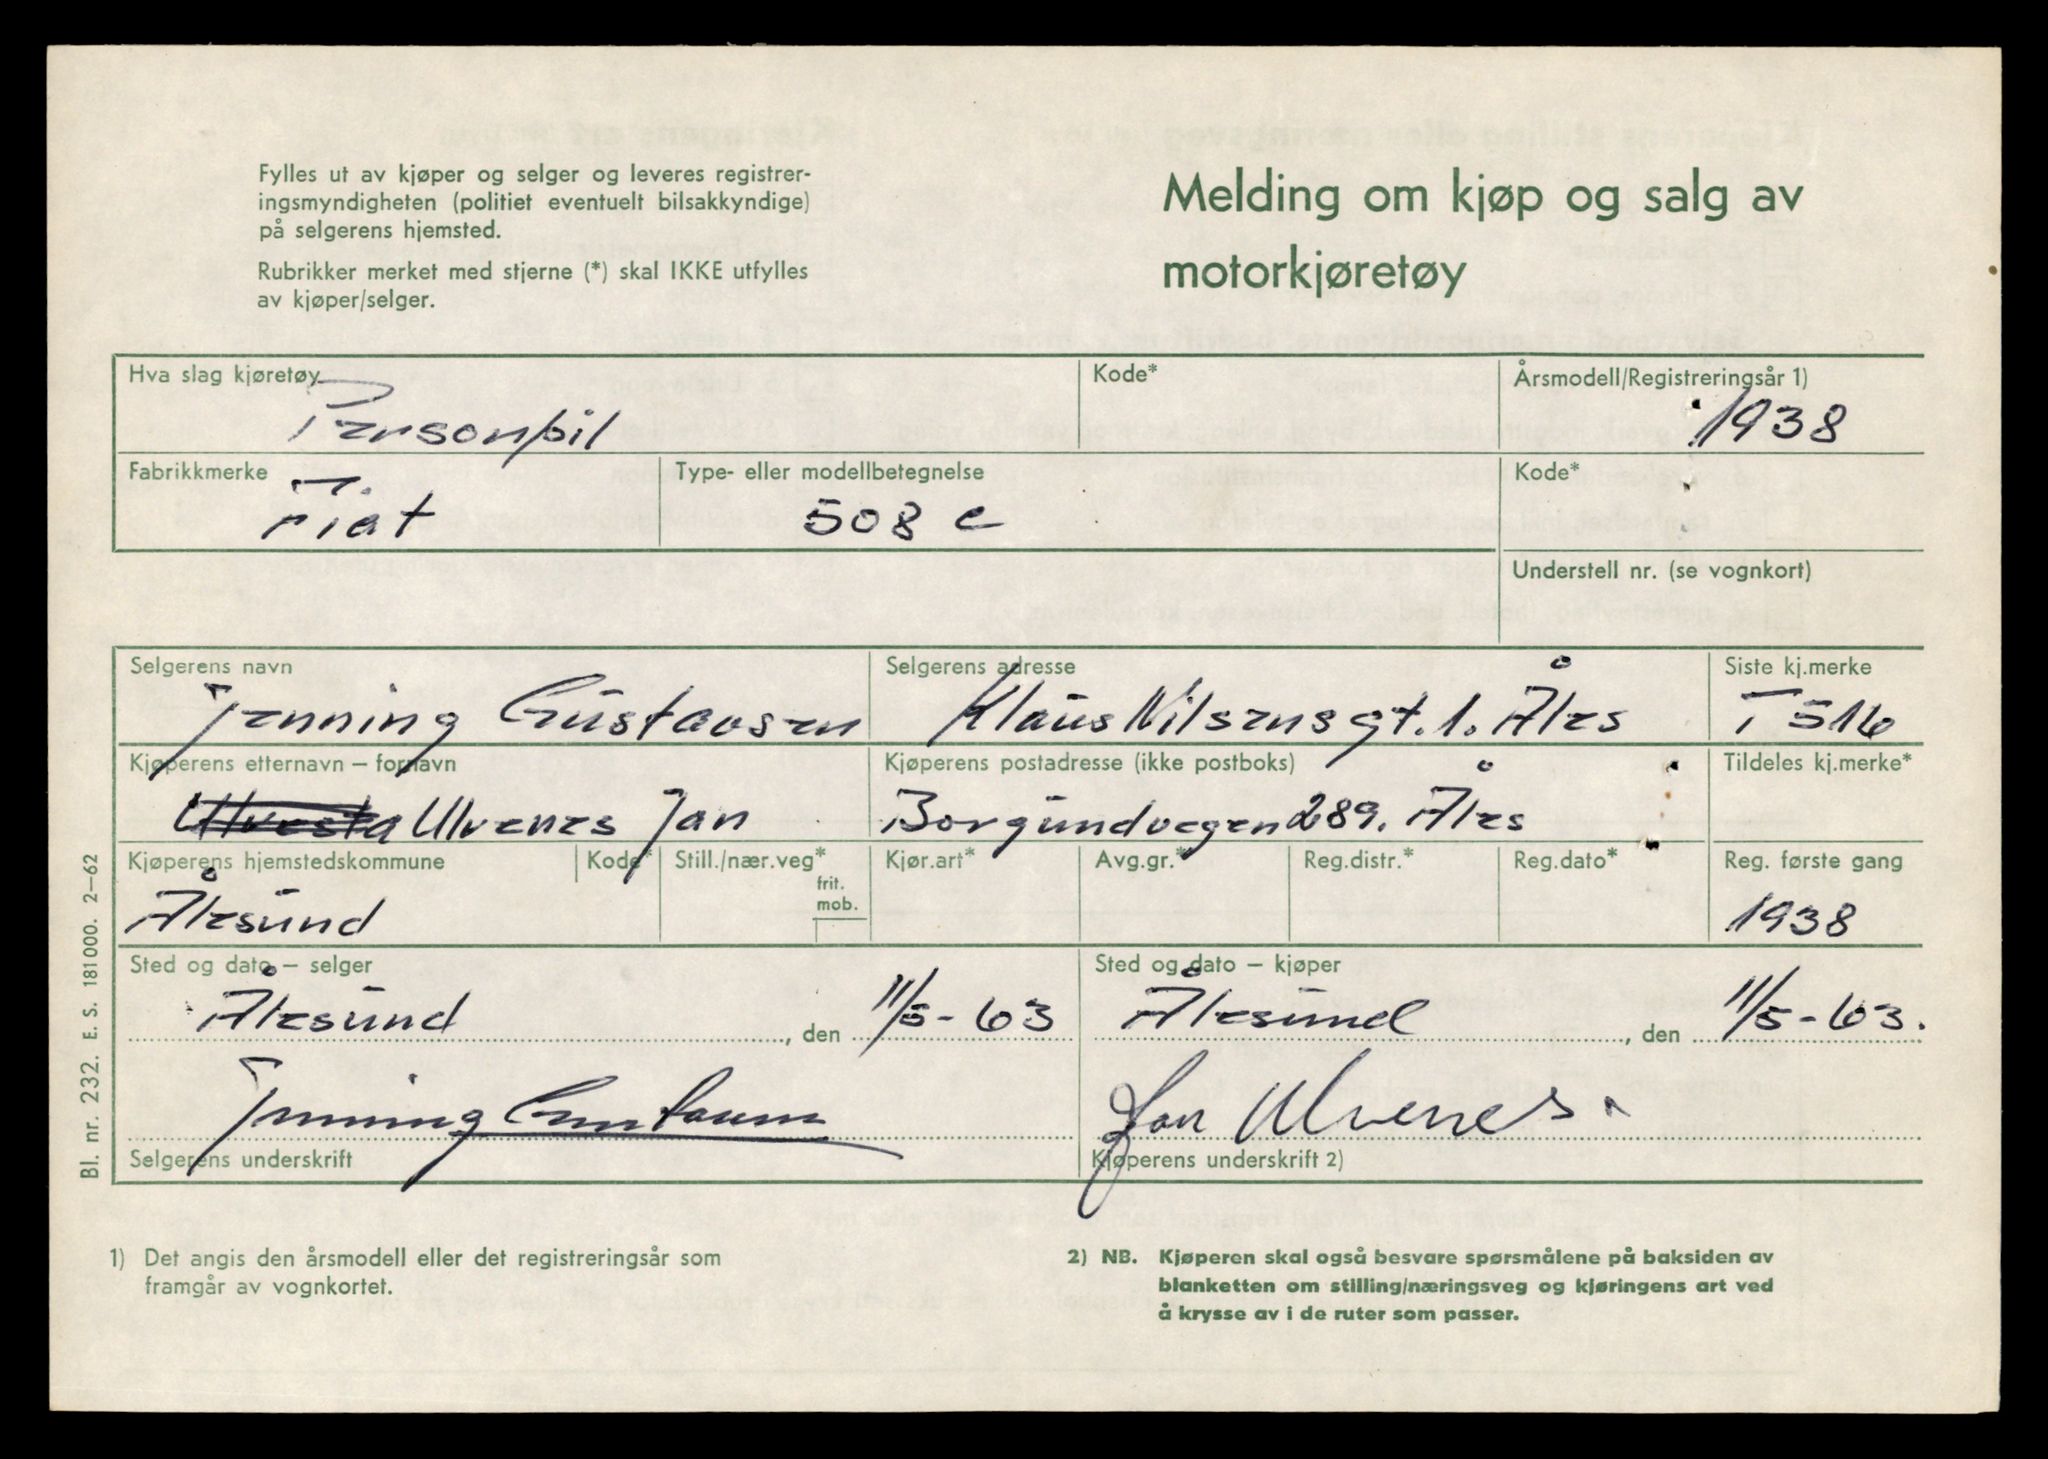 Fylles ut av kjøper og selger og leveres registrer-
ingsmyndigheten (politiet eventuelt bilsakkyndige)
på selgerens hjemsted.
Rubrikker merket med stjerne (*) skal IKKE utfylles
av kjøper/selger.
Melding om kjøp og salg av
motorkjøretøy
Hva slag kjøretøy
Personbil
Kode*
Årsmodell/Registreringsår 1)
1938
Fabrikkmerke
Fiat
Type- eller modellbetegnelse
508 c
Kode*
Understell nr. (se vognkort)
Selgerens navn
Jenning Gustavsen
Selgerens adresse
Klaus Nilsensgt. 1. Åles
Siste kj.merke
T 516
Kjøperens etternavn – fornavn
Ulvesta Ulvenes Jan
Kjøperens postadresse (ikke postboks)
Borgundvegen 289. Åles
Tildeles kj.merke*
Kjøperens hjemstedskommune
Ålesund
Kode*
Still./nær.veg*
frit.
mob.
Kjør.art*
Avg.gr.*
Reg.distr.*
Reg.dato*
Reg. første gang
1938
Sted og dato – selger
Ålesund, den 11/5-63
Sted og dato – kjøper
Ålesund, den 11/5-63.
Jenning Gustavsen
Selgerens underskrift
Jan Ulvenes.
Kjøperens underskrift 2)
1) Det angis den årsmodell eller det registreringsår som
framgår av vognkortet.
2) NB. Kjøperen skal også besvare spørsmålene på baksiden av
blanketten om stilling/næringsveg og kjøringens art ved
å krysse av i de ruter som passer.
Bl. nr. 232. E. S. 181000. 2–62